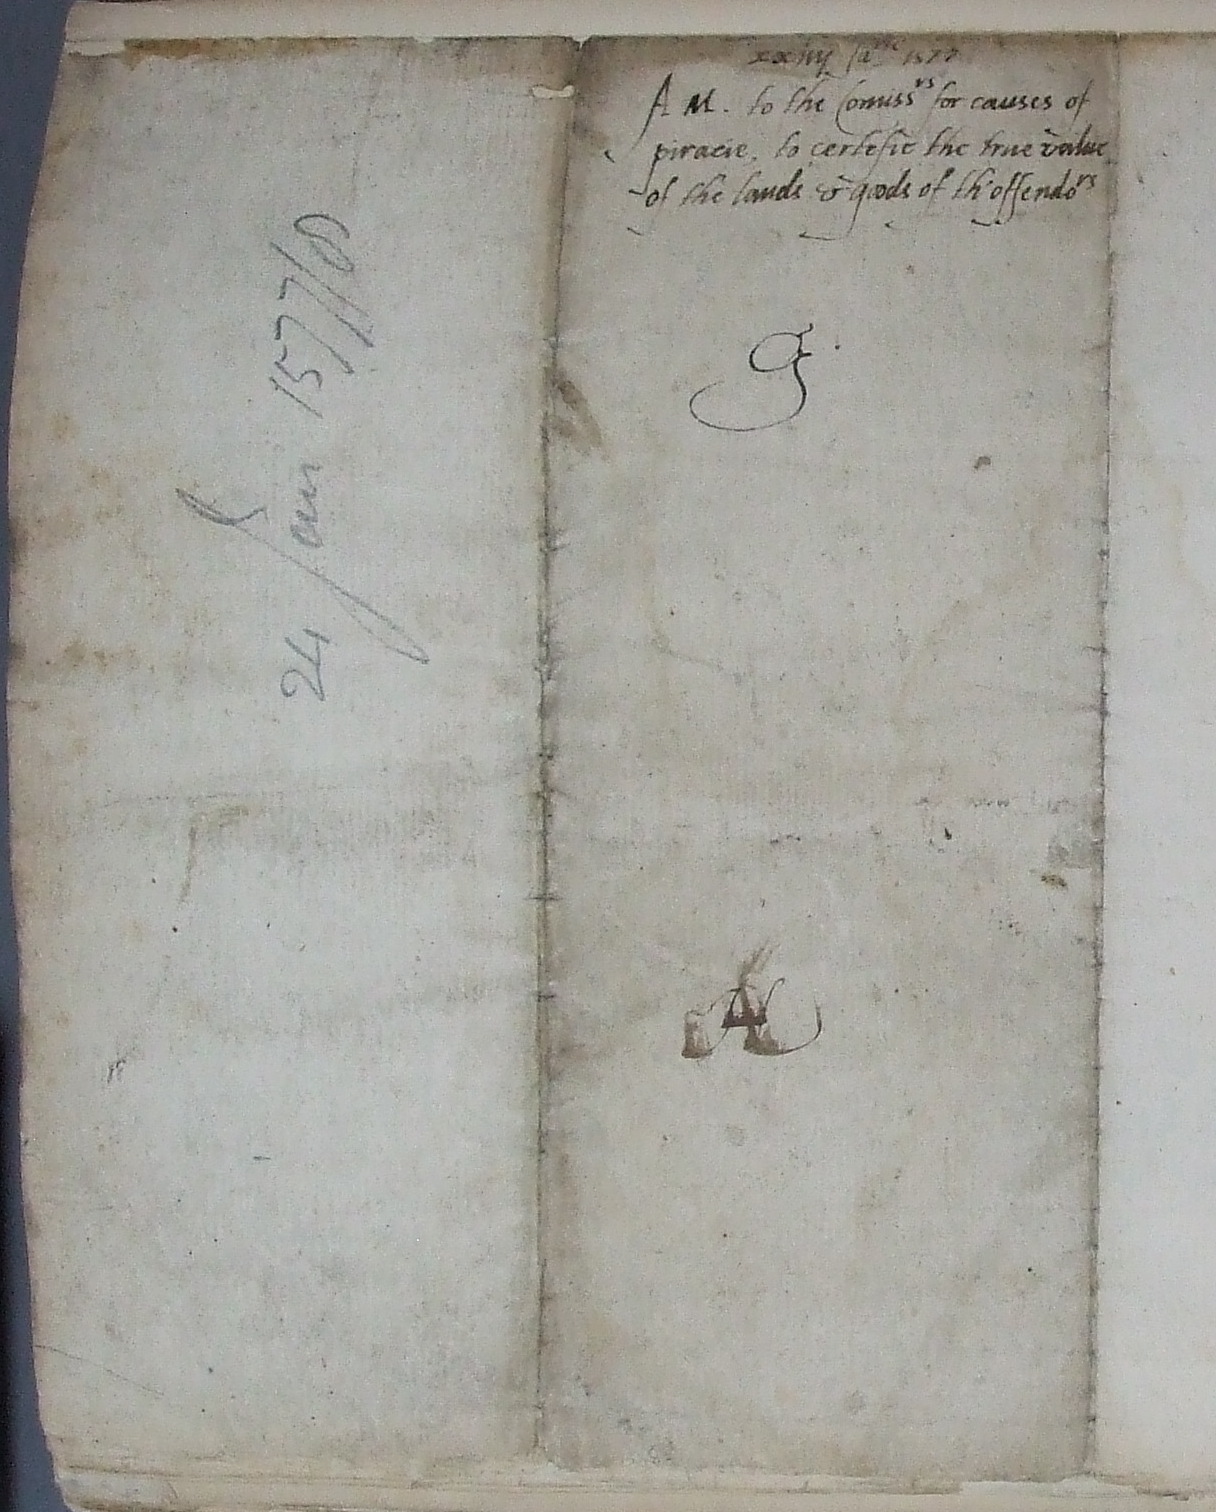 xxiiij Ja^rie 1577
A M. to the Comiss^rs for causes of
piracie, to certefie the true value
of the lands & goods of th'offendo^rs
G
A
24 Jan 1577/8